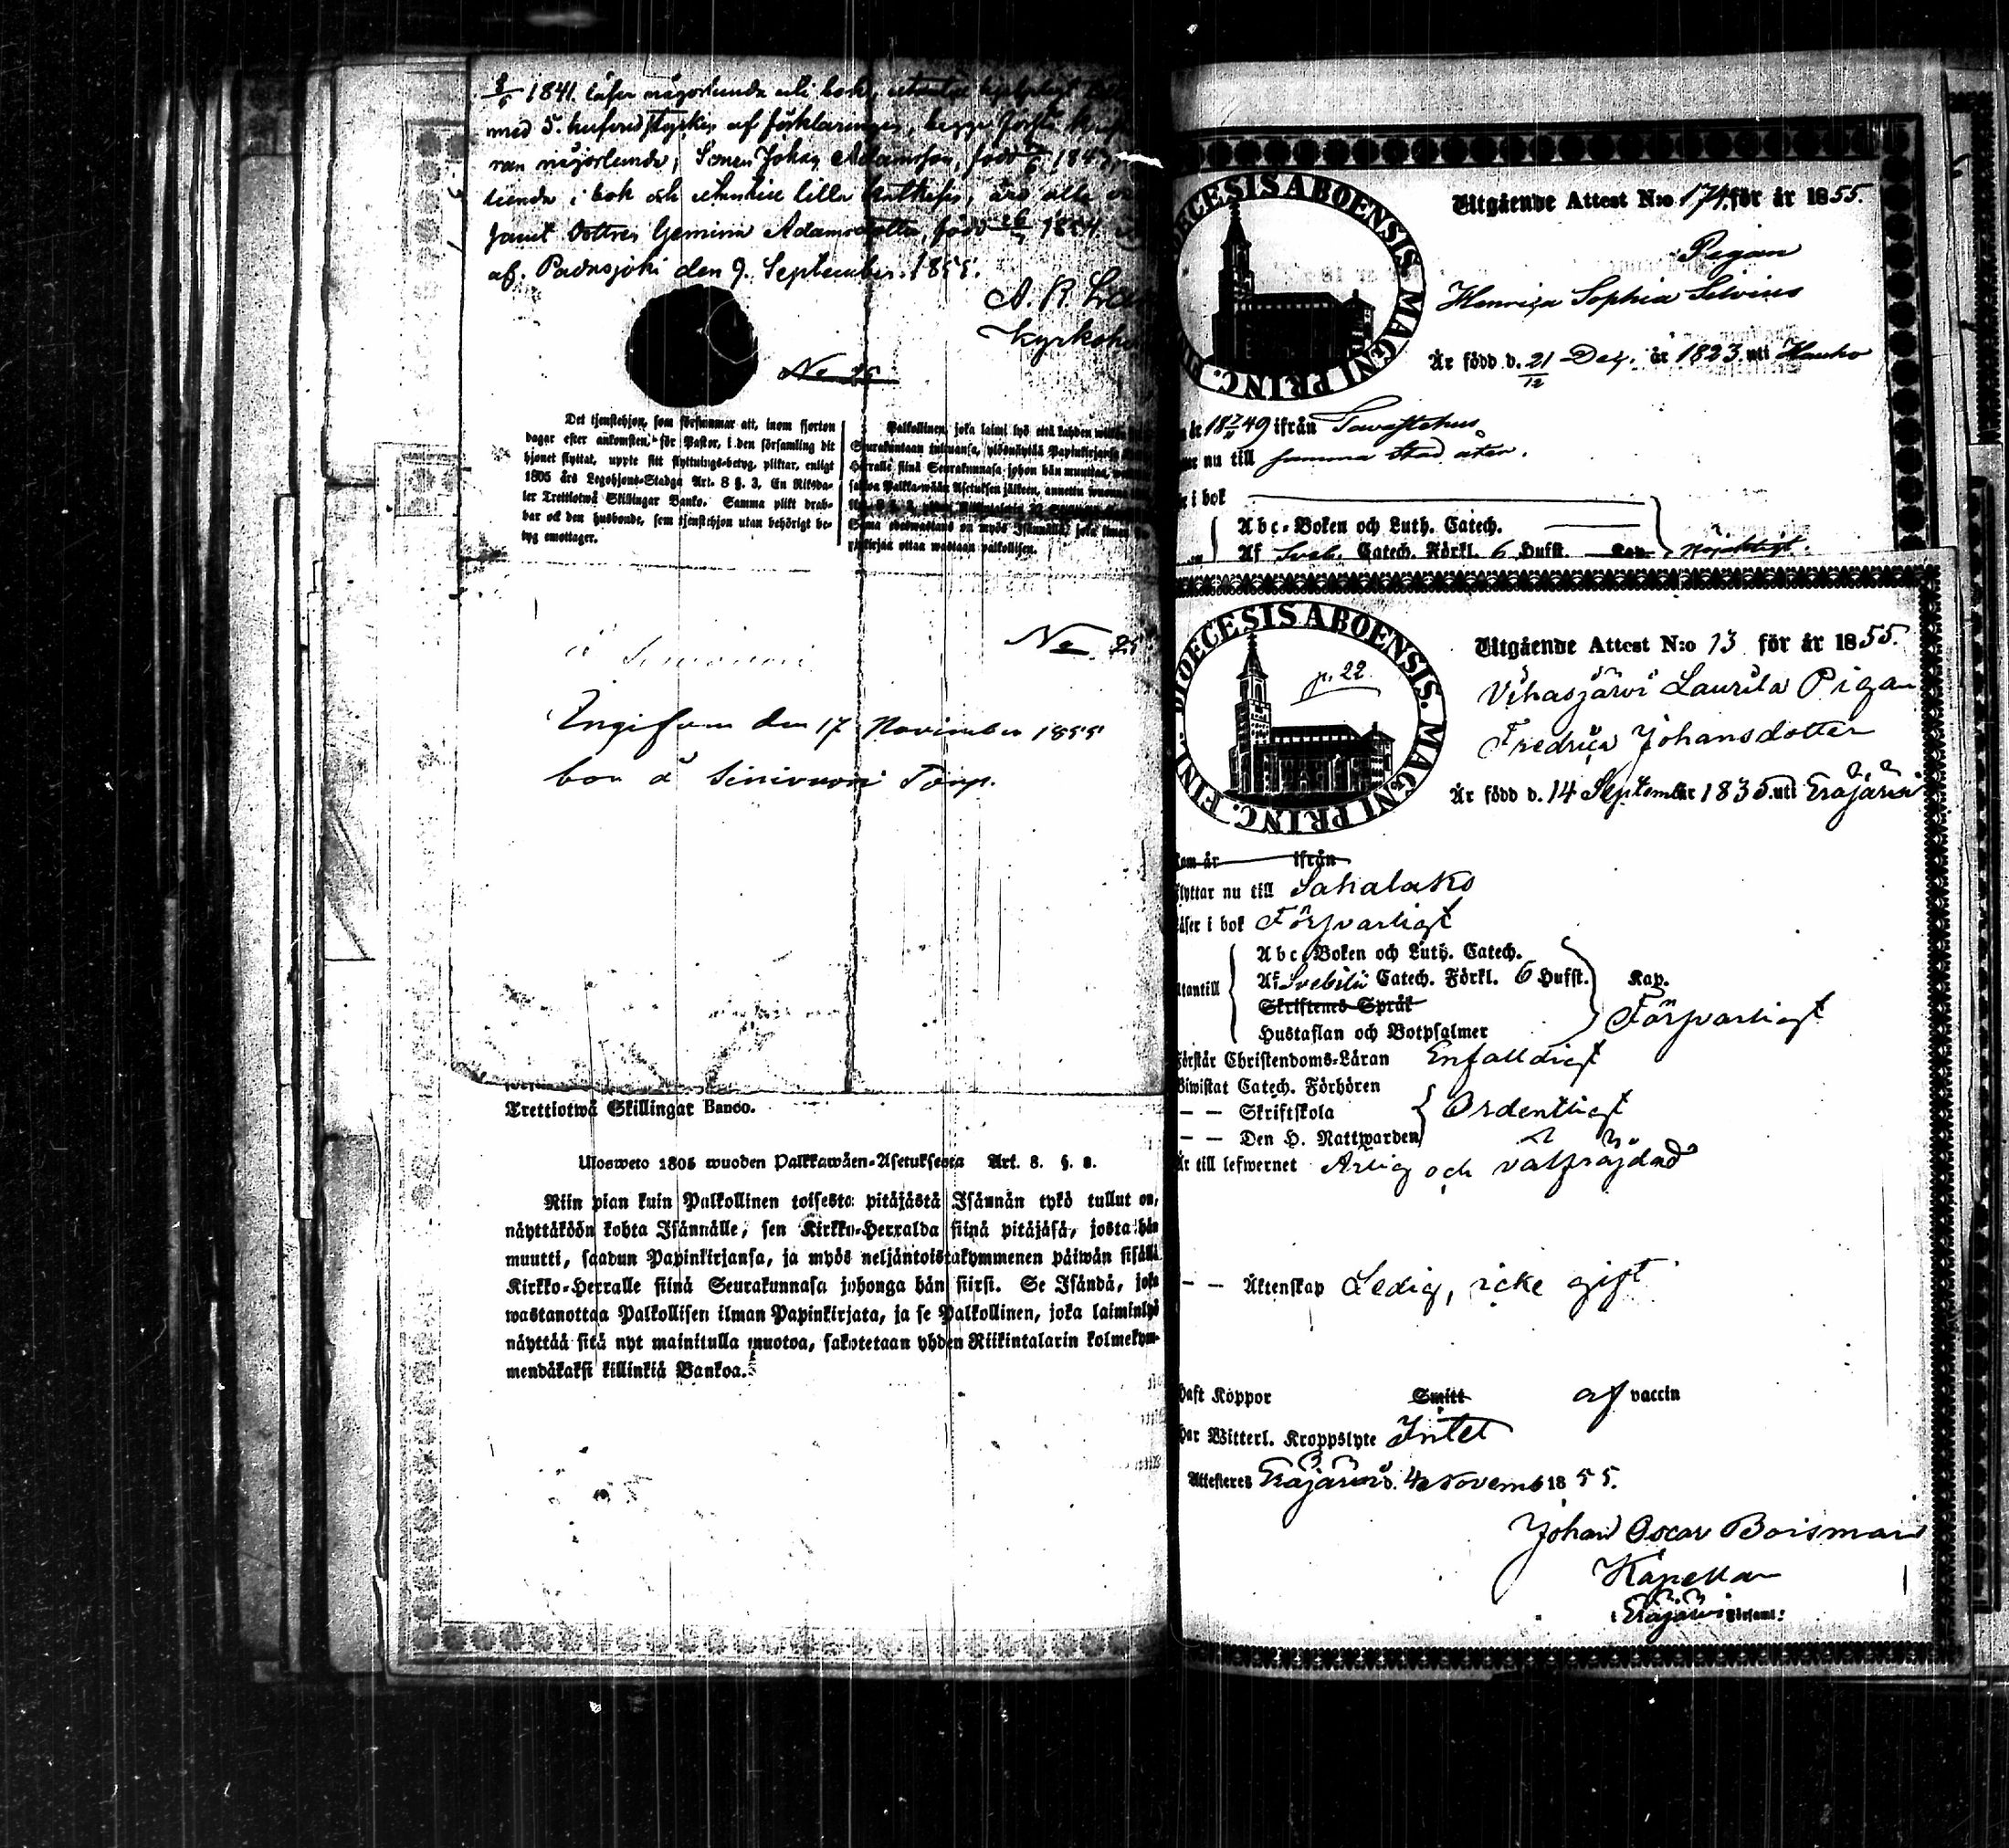 1841 läser någorlunda uti bok, utantill hjelpligt
med 5. hufvudstycken af förklaringen, begge förstå
ran någorlunda; Sonen Johan Adamsson, född 1847
lunda i bok och utantill lilla kathekes, äro alla
samt dottren Gemina Adamsdotter, född 1854
af. Padasjoki den 9. September. 1855.
A. R.
Kyrkoh
No 25
Det tjenstehjon, som försummar att, inom fjorton
dagar efter ankomsten, för Pastor, i den församling dit
hjonet flyttat, uppte sitt flyttnings-betyg, pliktar, enligt
1805 års Legohjons-Stadga Art. 8 §. 3, En Riksda-
ler Trettiotwå Skillingar Banko. Samma plikt drab-
bar ock den husbonde, som tjenstehjon utan behörigt be-
tyg emottager.
Palkollinen, joka laimi lyö että kahden
Seurakuntaan tultuansa, ylösnäyttää Papinkirjansa
Herralle siinä Seurakunnasa johon hän muuttaa,
sakkoa Palkka-wään Asetuksen jälkeen, annettu wuonna
Sama edeswastaus on myös Isännällä, joka ilman
pinkirjaa ottaa wastaan palkollisen.
No 25
Ingifven den 17 November 1855
bor å Sinivuori Torp.
Trettiotwå Skillingar Banco.
Ulosweto 1805 wuoden Palkkawäen-Asetuksesta Art. 8. §. 3.
Niin pian kuin Palkollinen toisesta pitäjästä Isännän tykö tullut on,
näyttäköön kohta Isännälle, sen Kirkko-Herralda siinä pitäjäsä, josta hän
muutti, saadun Papinkirjansa, ja myös neljäntoistakymmenen päiwän sisällä
Kirkko-Herralle siinä Seurakunnasa johonga hän siirsi. Se Isändä, joka
wastanottaa Palkollisen ilman Papinkirjata, ja se Palkollinen, joka laiminlyö
näyttää sitä nyt mainitulla muotoa, sakotetaan yhden Riikintalarin kolmekym-
mendäkaksi killinkiä Bankoa.
DIOECESIS ABOENSIS. MAGNI PRINC. FINL.
Utgående Attest N:o 174 för år 1855.
Pigan
Henrica Sophia Silvius
Är född d. 21/12 Dec. år 1823. uti Hauho
1849 ifrån Tavastehus
nu till samma stad åter.
i bok
Abc-Boken och Luth. Catech.
Af Sveb. Catech. Förkl. 6 Hufst. Kap.
DIOECESIS ABOENSIS. MAGNI PRINC. FINL.
p. 22
Utgående Attest N:o 13 för år 1855.
Vihasjärvi Laurila Pigan
Fredrica Johansdotter
Är född d. 14 September 1835. uti Eräjärvi
Kom år ifrån
Flyttar nu till Sahalaks
Läser i bok Försvarligt
Abc-Boken och Luth. Catech.
Utantill Af Svebilii Catech. Förkl. 6 Hufst. Kap.
Skriftenes Språk
Hustaflan och Botpsalmer Försvarligt
Förstår Christendoms-Läran Enfalldigt
Biwistat Catech. Förhören
— — Skriftskola Ordentligt
— — Den H. Nattwarden
Är till lefwernet Ärlig och välfräjdad
— — Äktenskap Ledig, icke gift
Haft Koppor Smitt af vaccin
Har Witterl. Kroppslyte Intet
Attesteres Eräjärvi d. 4 Novemb 1855.
Johan Oscar Boisman
Kapellan
i Eräjärvi Församl: